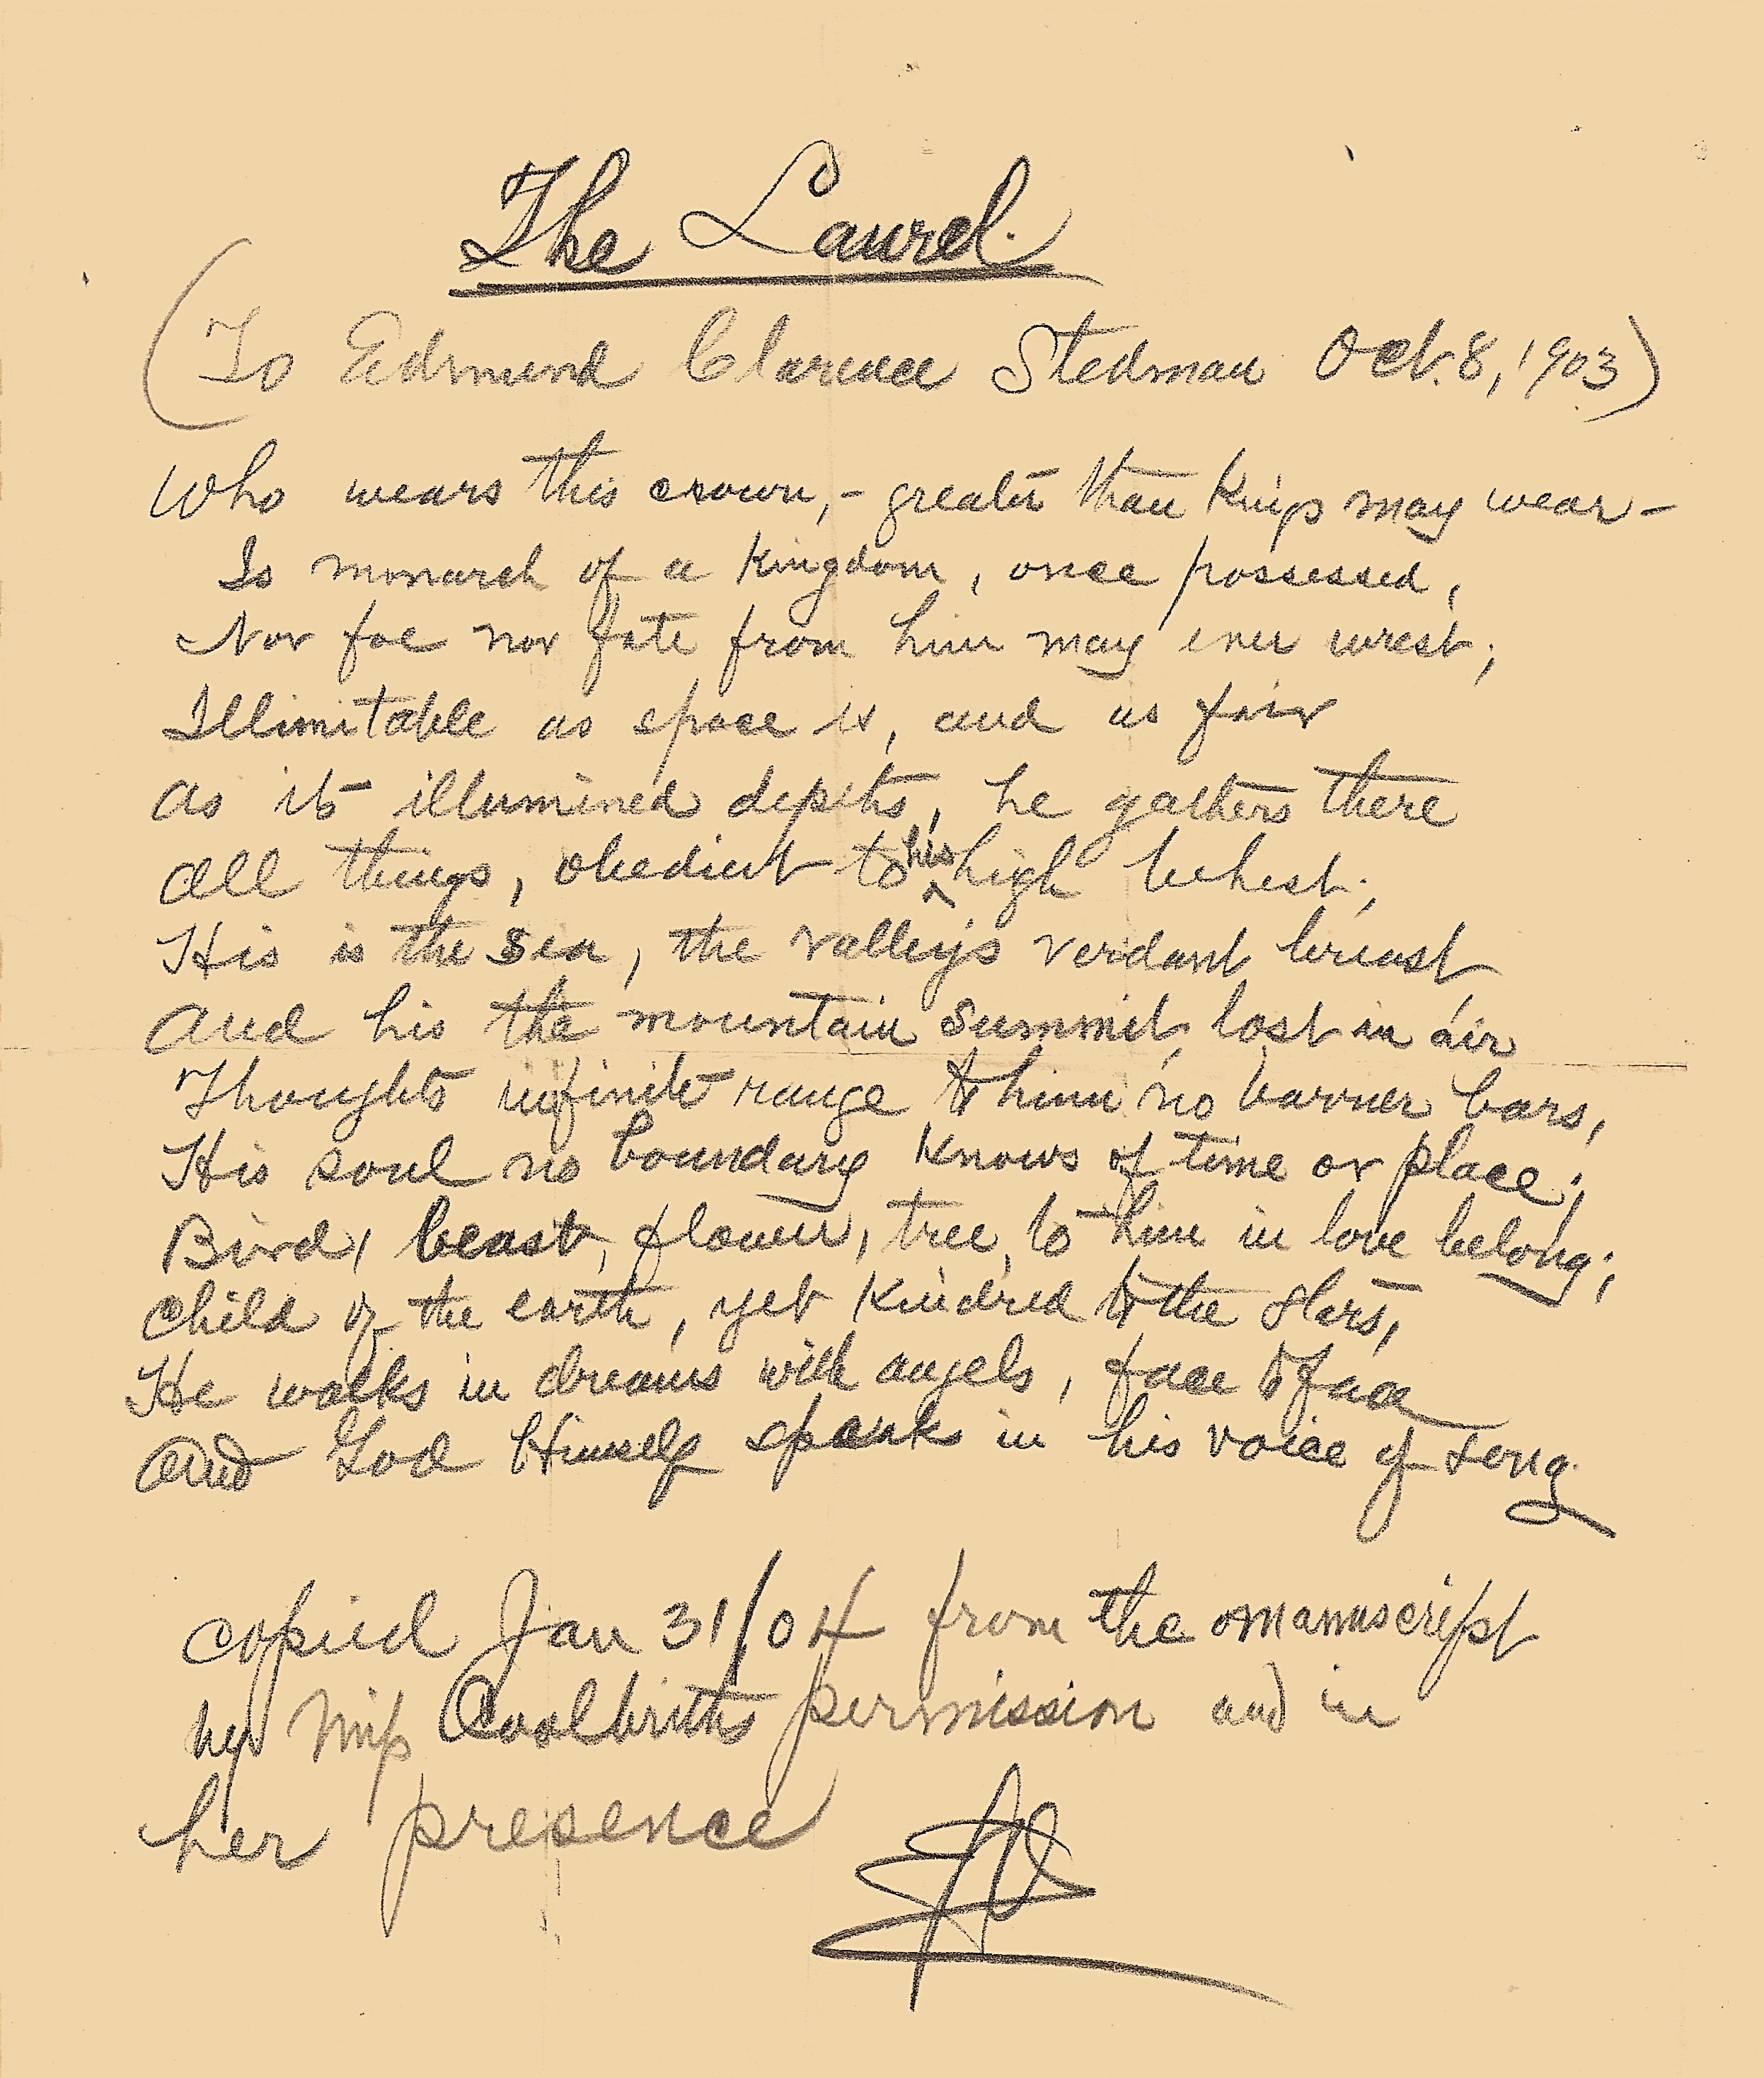 The Laurel.
(To Edmund Clarence Stedman Oct. 8, 1903)
Who wears this crown, - greater than Kings may wear -
Is monarch of a Kingdom, once possessed,
Nor foe nor fate from him may ever wrest;
Illimitable as space is, and as fair
As its illumined depths, he gathers there
All things, obedient to his high behest;
His is the sea, the valleys verdant breast
And his the mountain summit, lost in air
Thoughts infinite range to him no barrier bars,
His soul no boundary Knows of time or place;
Bird, beast, flower, tree, to him in love belong;
Child of the earth, yet Kindred to the stars,
He walks in dreams with angels, face to face
And God Himself speaks in his voice of song.
Copied Jan 31/04 from the manuscript
by Miss Coolbriths permission and in
her presence